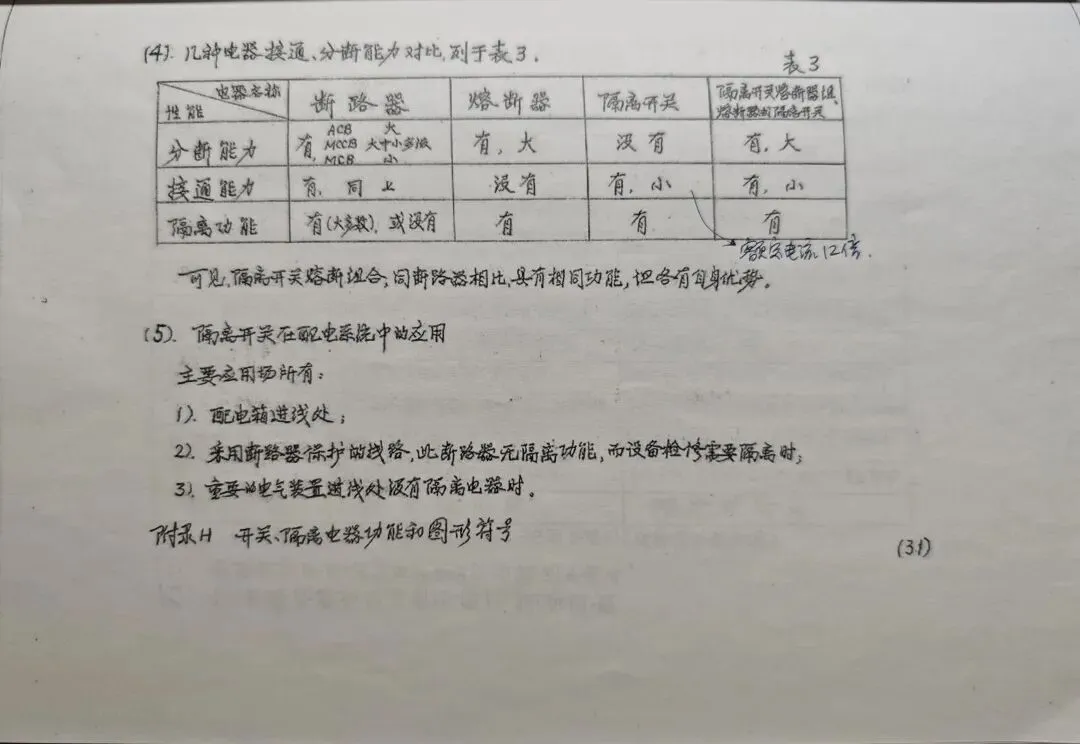 (4). 几种电器接通、分断能力对比,列于表3.
表3
电器名称
性能
断路器
熔断器
隔离开关
隔离开关熔断器组、
熔断器的隔离开关
分断能力
有,
ACB 大
MCCB 大中小多级
MCB 小
有,大
没有
有,大
接通能力
有,同上
没有
有,小
有,小
隔离功能
有(大多数),或没有
有
有
有
额定电流12倍.
可见,隔离开关熔断组合,同断路器相比,具有相同功能,但各有自身优势。
(5). 隔离开关在配电系统中的应用
主要应用场所有:
1). 配电箱进线处;
2). 采用断路器保护的线路,此断路器无隔离功能,而设备检修需要隔离时;
3). 重要的电气装置进线处没有隔离电器时。
附录H 开关、隔离电器功能和图形符号
(31)